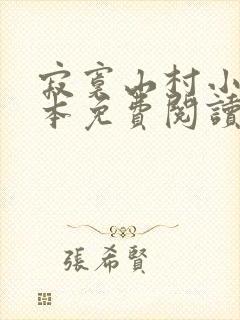 寂寞山村小
本免費閱讀
張希賢